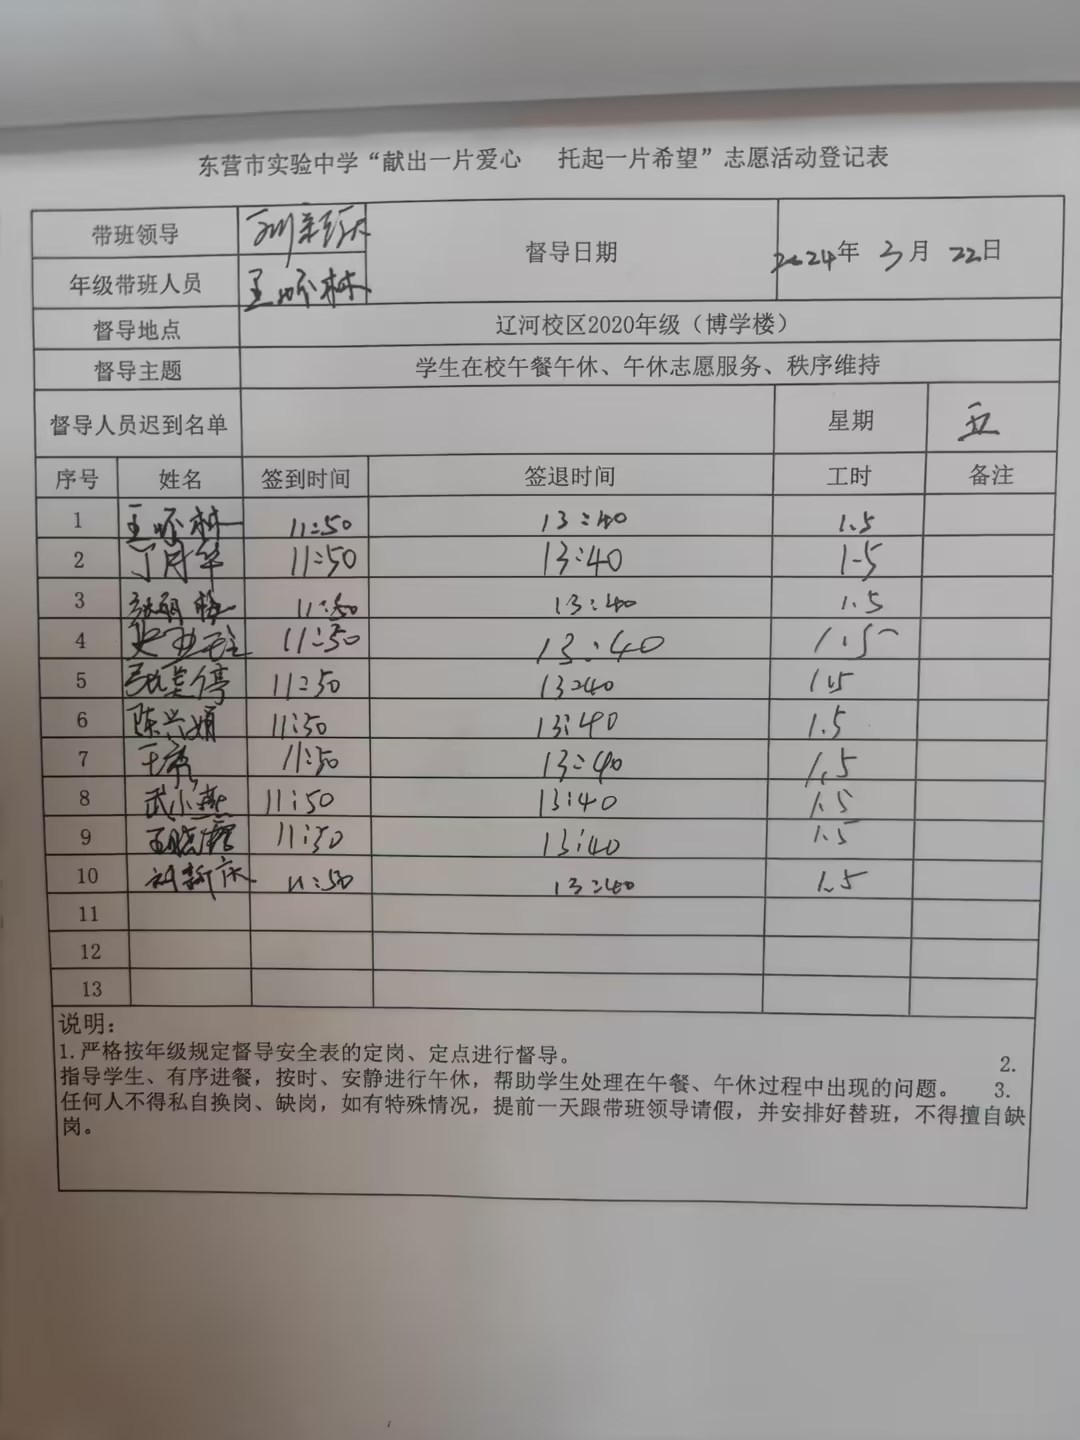 东营市实验中学“献出一片爱心 托起一片希望”志愿活动登记表
带班领导 刘新庆 督导日期 2024年 3月 22日
年级带班人员 王 林
督导地点 辽河校区2020年级（博学楼）
督导主题 学生在校午餐午休、午休志愿服务、秩序维持
督导人员迟到名单 星期 五
序号 姓名 签到时间 签退时间 工时 备注
1 王 林 11:50 13:40 1.5
2 丁月华 11:50 13:40 1.5
3 11:50 13:40 1.5
4 11:50 13:40 1.5
5 11:50 13:40 1.5
6 陈兴娟 11:50 13:40 1.5
7 11:50 13:40 1.5
8 武小燕 11:50 13:40 1.5
9 王晓霞 11:50 13:40 1.5
10 刘新庆 11:50 13:40 1.5
11
12
13
说明：
1.严格按年级规定督导安全表的定岗、定点进行督导。 2.
指导学生、有序进餐，按时、安静进行午休，帮助学生处理在午餐、午休过程中出现的问题。 3.
任何人不得私自换岗、缺岗，如有特殊情况，提前一天跟带班领导请假，并安排好替班，不得擅自缺
岗。